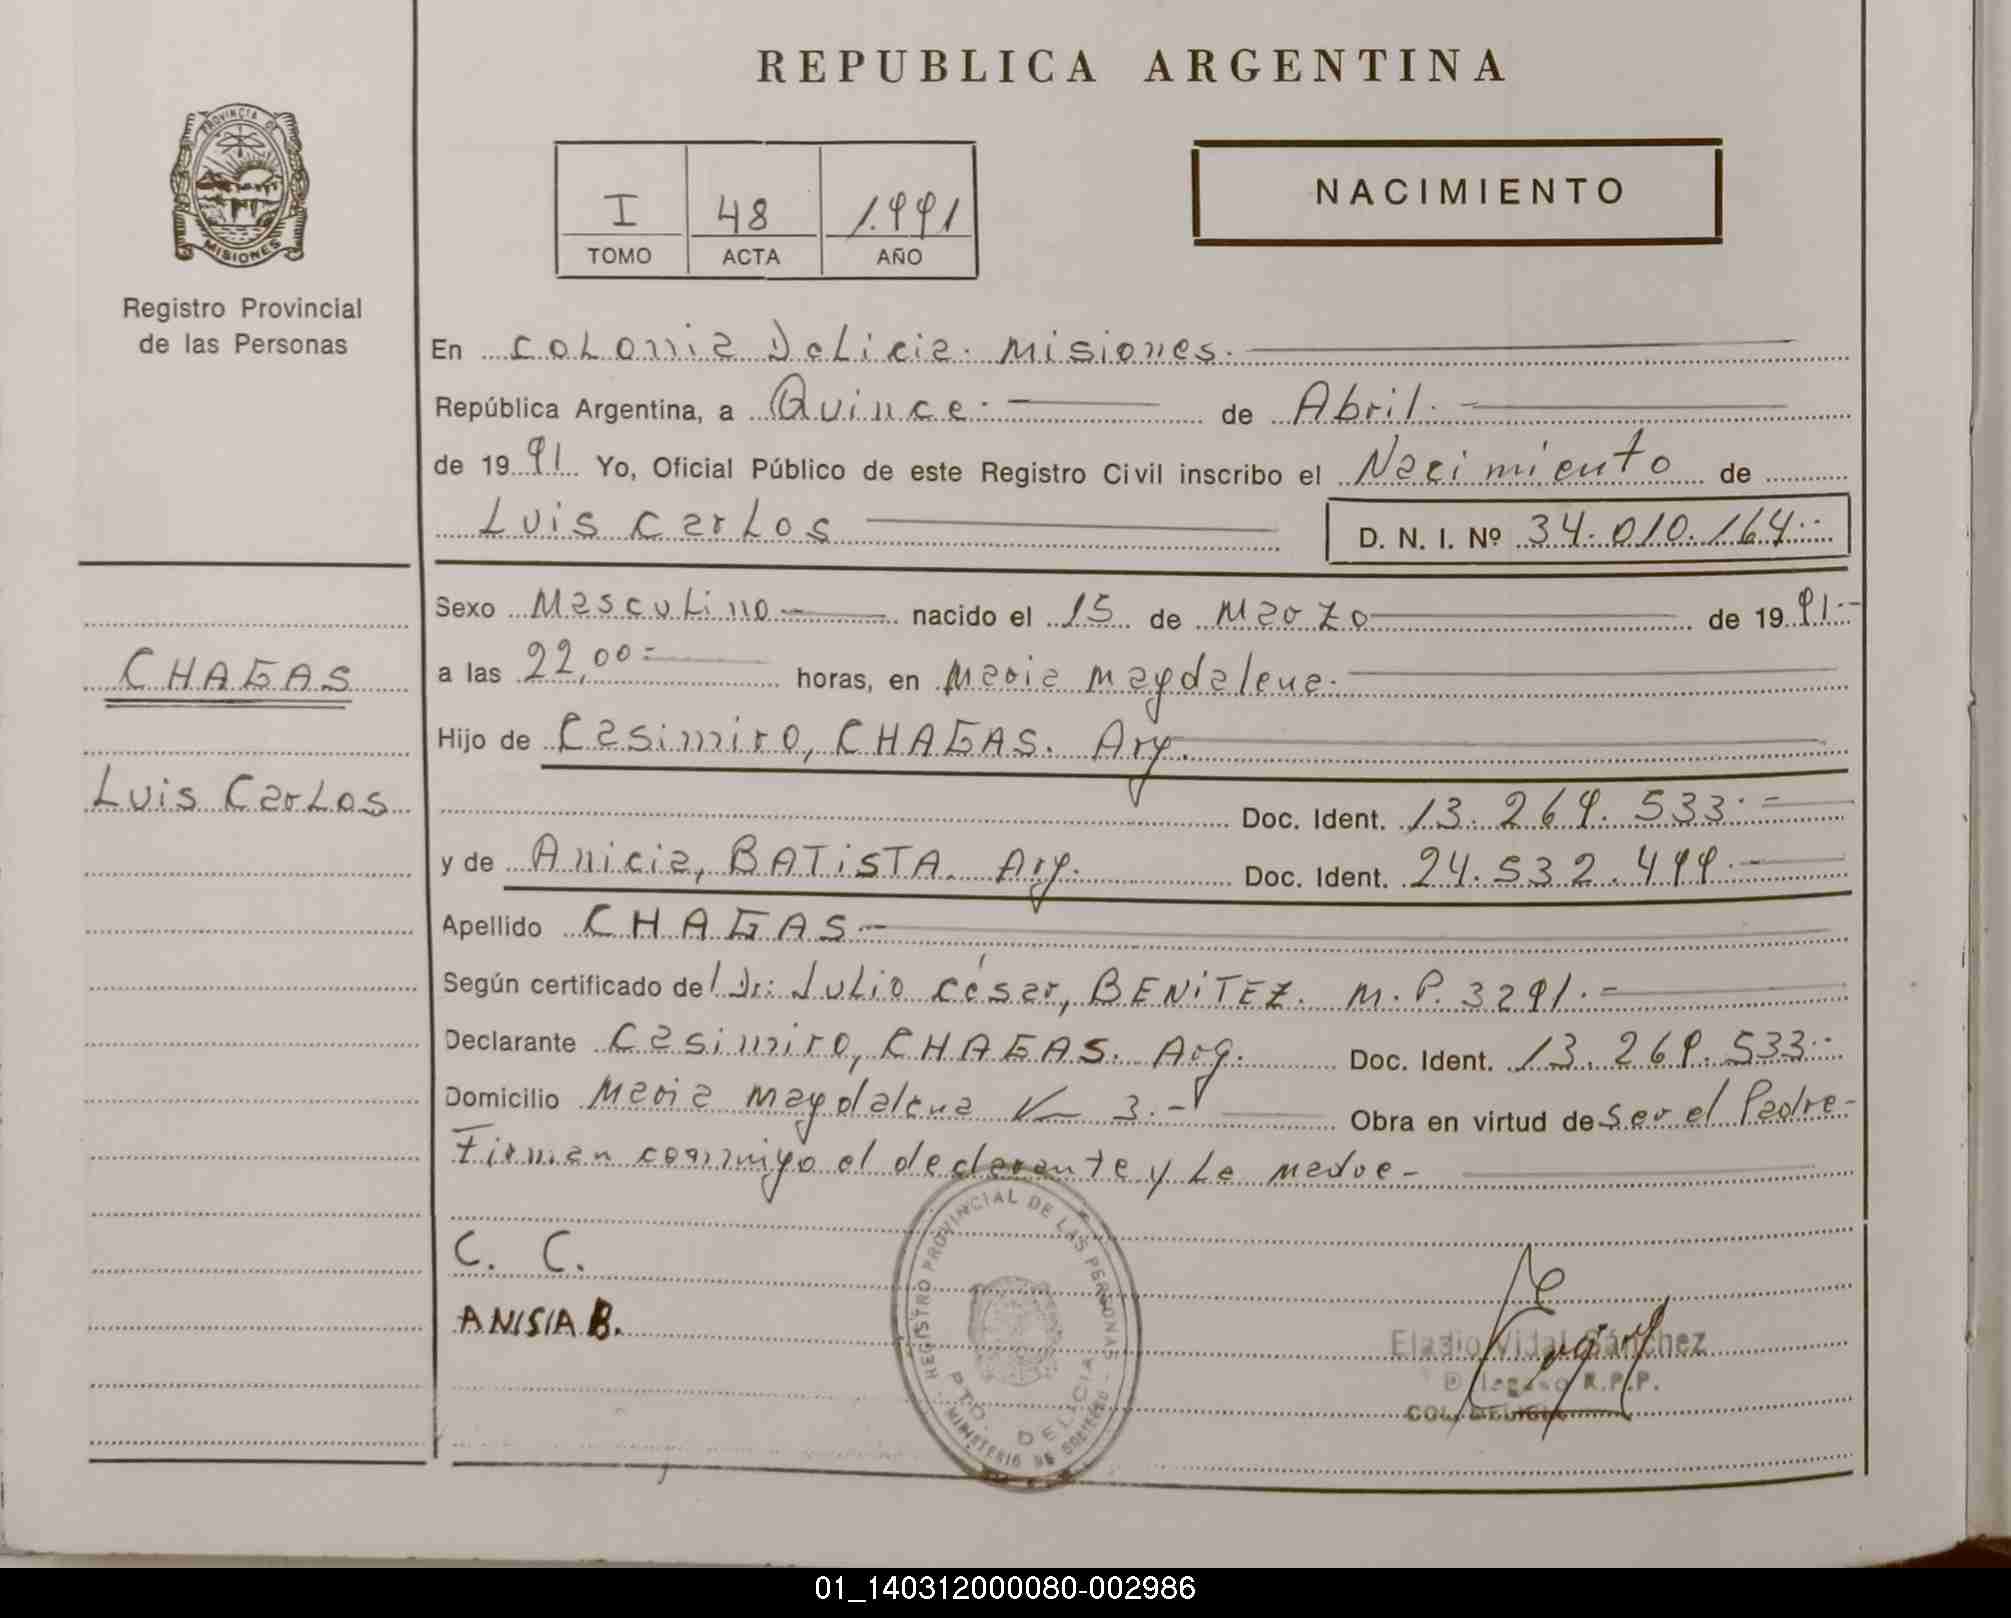 REPUBLICA ARGENTINA
PROVINCIA DE
MISIONES
Registro Provincial
de las Personas
I 48 1.991
TOMO ACTA AÑO
NACIMIENTO
En Colonia Delicia. Misiones.
República Argentina, a Quince.- de Abril.-
de 1991 Yo, Oficial Público de este Registro Civil inscribo el Nacimiento de
Luis Carlos
D. N. I. Nº 34.010.164.-
CHAGAS
Luis Carlos
Sexo Masculino nacido el 15 de Marzo de 1991.-
a las 22,00= horas, en Maria Magdalena.
Hijo de Casimiro, CHAGAS. Arg.
Doc. Ident. 13.269.533.-
y de Anicia, BATiSTA. Arg. Doc. Ident. 24.532.499.-
Apellido CHAGAS.-
Según certificado del Dr: Julio César, BENiTEZ. M.P. 3291.-
Declarante Casimiro, CHAGAS. Arg. Doc. Ident. 13.269.533.-
Domicilio Maria Magdalena K 3.- Obra en virtud de Ser el Padre-
Firman conmigo el declarante y La Madre-
C. C.
ANISIA B.
REGISTRO PROVINCIAL DE LAS PERSONAS
PTO. DELICIA
MINISTERIO DE GOBIERNO
Eladio Vidal Sánchez
Delegado R.P.P.
COL. DELICIA
01_140312000080-002986